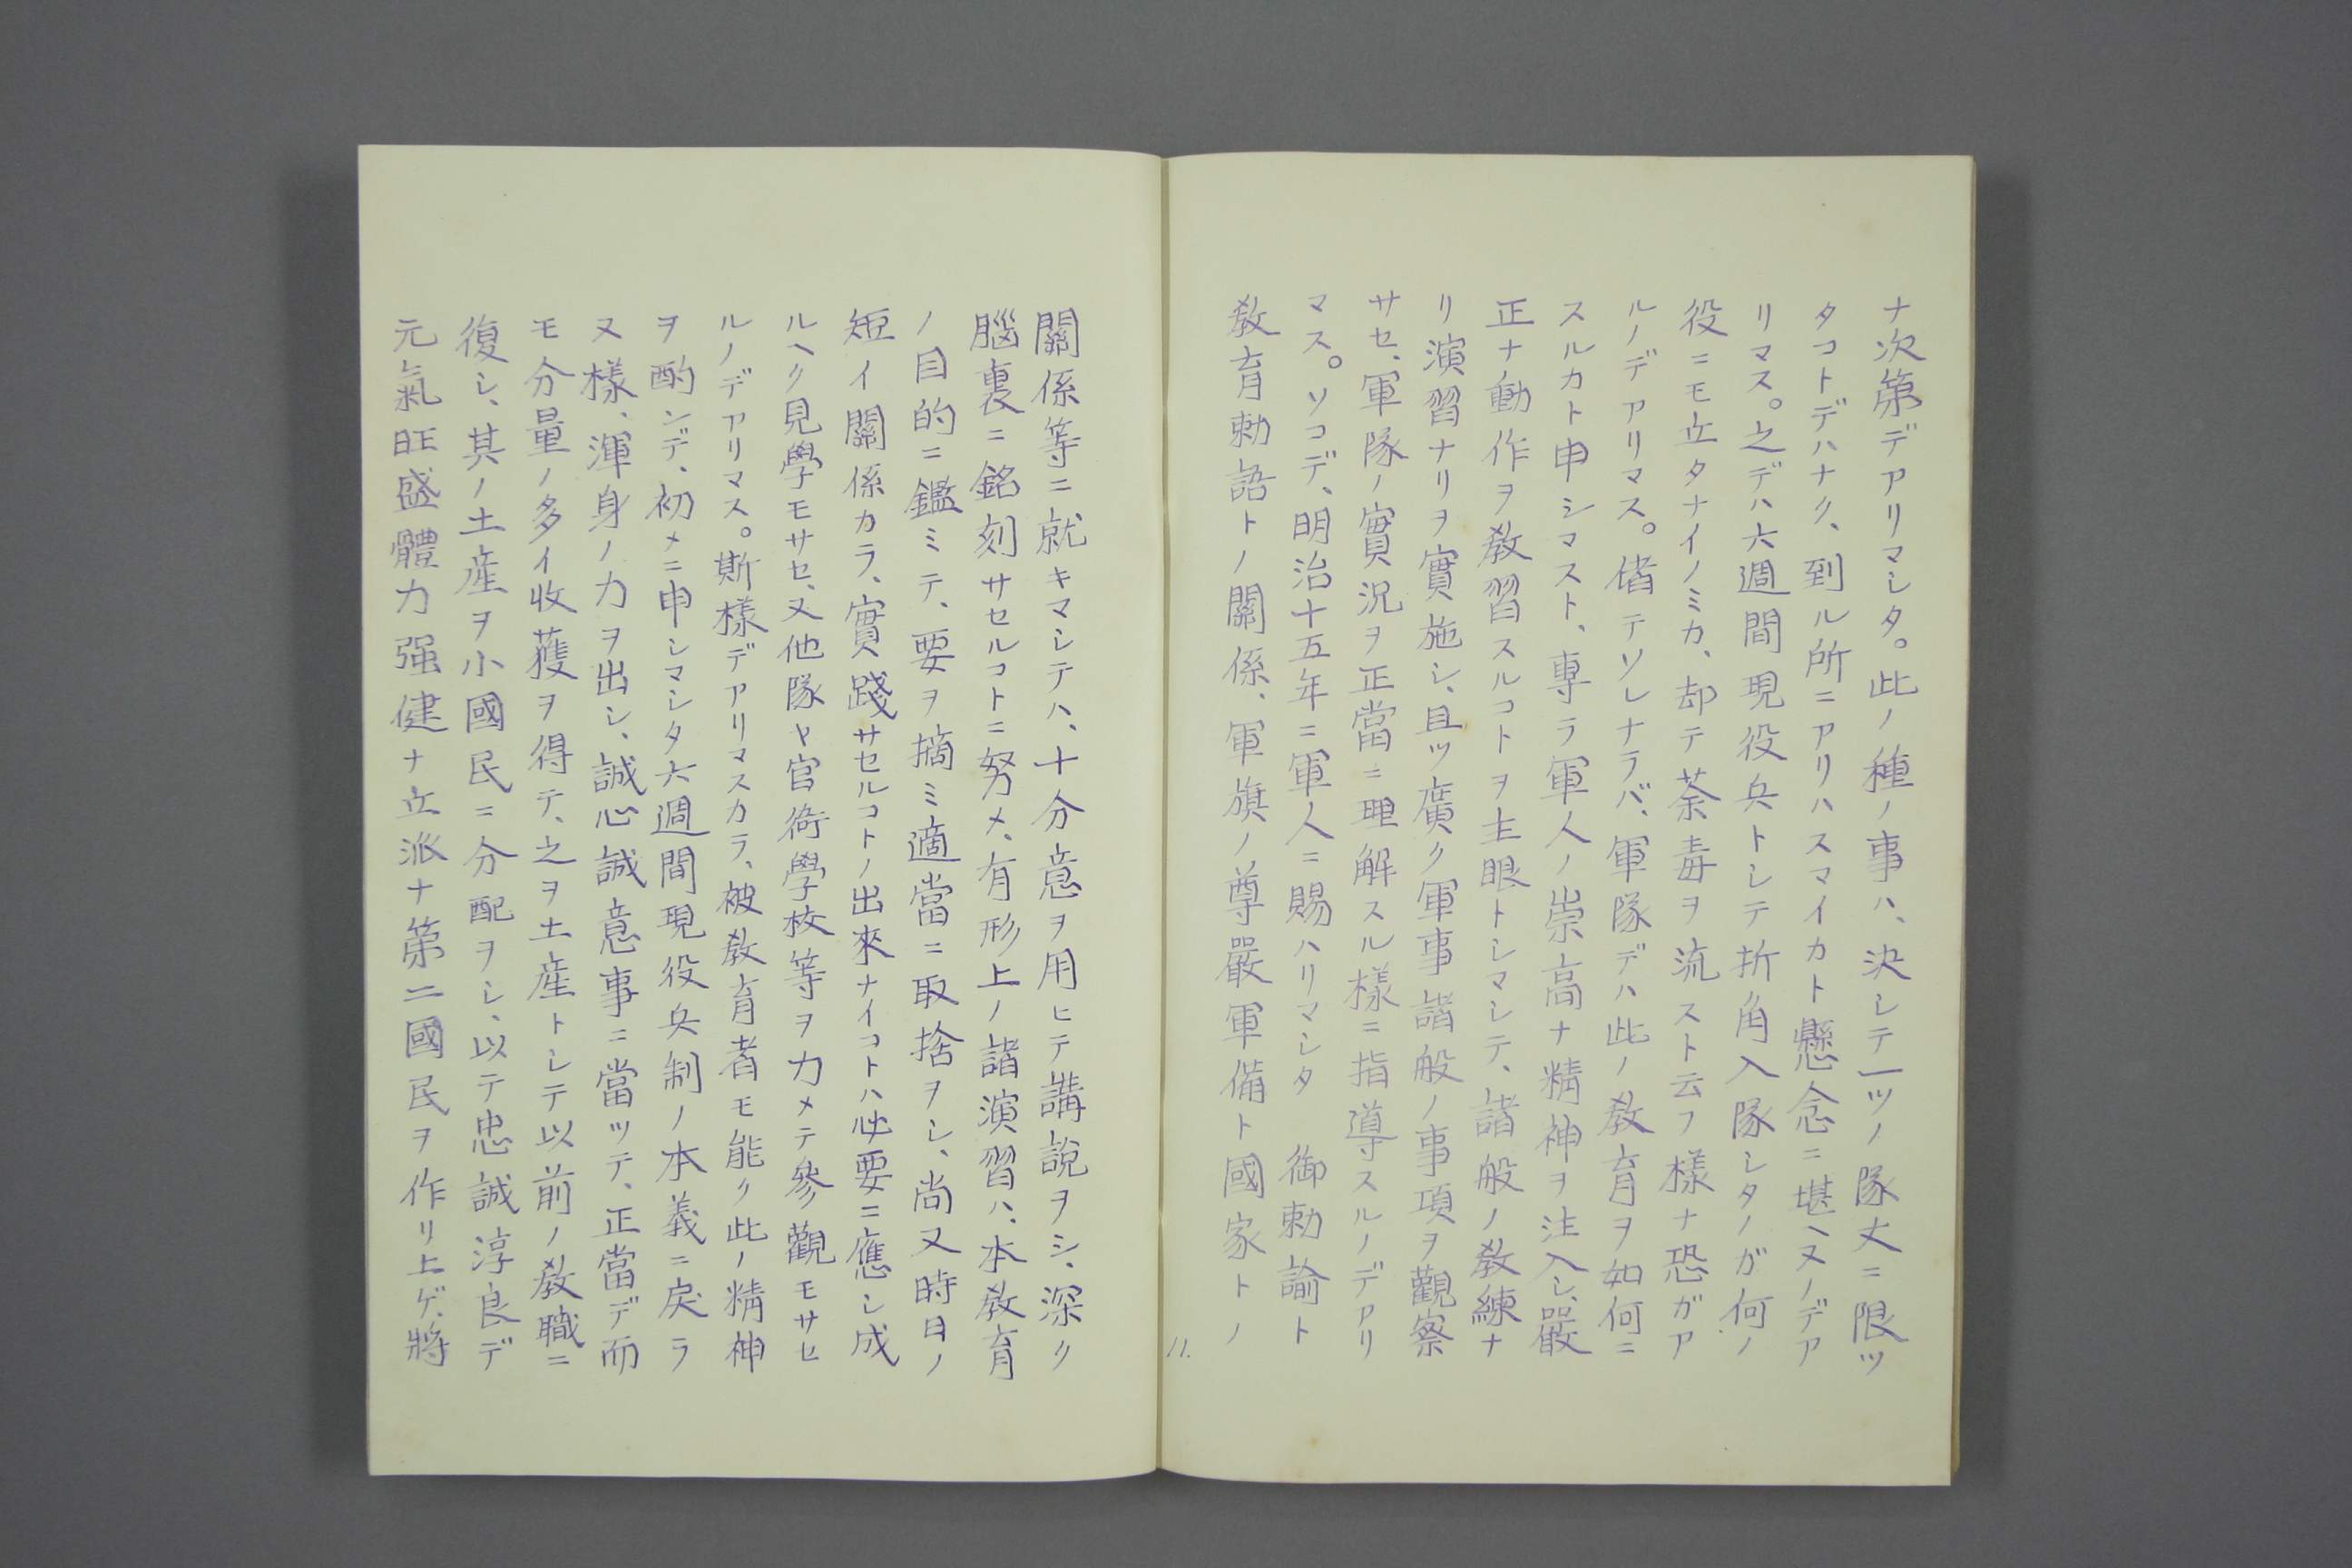 ナ次第デアリマシタ。此ノ種ノ事ハ、決シテ一ツノ隊丈ニ限ツ
タコトデハナク、到ル所ニアリハスマイカト懸念ニ堪ヘヌノデア
リマス。之デハ六週間現役兵トシテ折角入隊シタノガ何ノ
役ニモ立タナイノミカ、却テ荼毒ヲ流スト云フ様ナ恐ガア
ルノデアリマス。偖テソレナラバ、軍隊デハ此ノ教育ヲ如何ニ
スルカト申シマスト、専ラ軍人ノ崇高ナ精神ヲ注入シ、嚴
正ナ動作ヲ教習スルコトヲ主眼トシマシテ、諸般ノ教練ナ
リ演習ナリヲ實施シ、且ツ廣ク軍事諸般ノ事項ヲ觀察
サセ、軍隊ノ實況ヲ正當ニ理解スル様ニ指導スルノデアリ
マス。ソコデ、明治十五年ニ軍人ニ賜ハリマシタ　御勅諭ト
教育勅語トノ關係、軍旗ノ尊嚴軍備ト國家トノ
11.
關係等ニ就キマシテハ、十分意ヲ用ヒテ講說ヲシ、深ク
腦裏ニ銘刻サセルコトニ努メ、有形上ノ諸演習ハ、本教育
ノ目的ニ鑑ミテ、要ヲ摘ミ適當ニ取捨ヲシ、尚又時日ノ
短イ關係カラ、實踐サセルコトノ出來ナイコトハ必要ニ應シ成
ルヘク見學モサセ、又他隊ヤ官衙學校等ヲ力メテ參觀モサセ
ルノデアリマス。斯様デアリマスカラ、被教育者モ能ク此ノ精神
ヲ酌ンデ、初メニ申シマシタ六週間現役兵制ノ本義ニ戻ラ
ヌ様、渾身ノ力ヲ出シ、誠心誠意事ニ當ツテ、正當デ而
モ分量ノ多イ收獲ヲ得テ、之ヲ土産トシテ以前ノ教職ニ
復シ、其ノ土産ヲ小國民ニ分配ヲシ、以テ忠誠淳良デ
元氣旺盛體力强健ナ立派ナ第二國民ヲ作リ上ゲ、將